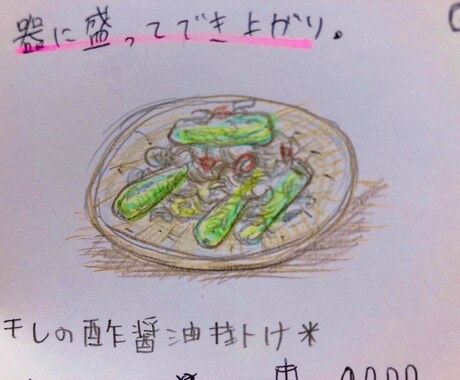 器に盛ってでき上がり。
干しの酢醤油掛け*